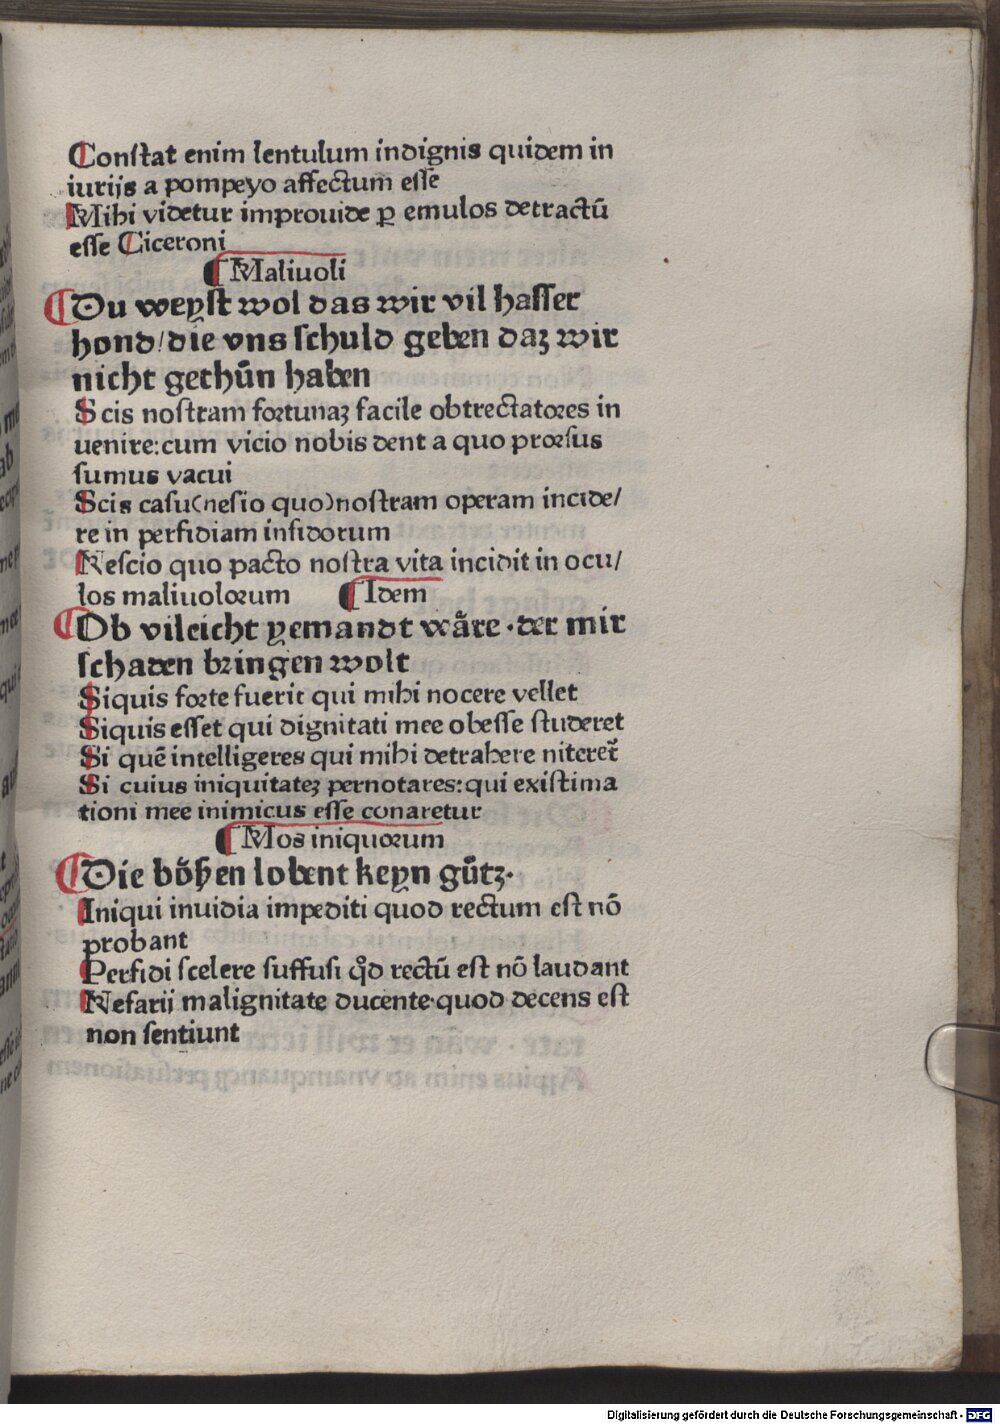 Conſtat enim lentulum indignis quidem in
iurijs a pompeyo affectum eſſe
Mihi videtur improuide ꝑ emulos detractū
eſſe Ciceroni
¶ Maliuoli
¶ Du weyſt wol das wir vil haſſer
hond/die vns ſchuld geben daʒ wir
nicht gethūn haben
Scis noſtram foꝛtunaʒ facile obtrectatoꝛes in
uenire:cum vicio nobis dent a quo pꝛoꝛſus
ſumus vacui
Scis caſu(neſio quo)noſtram operam incide/
re in perfidiam inſidorum
Neſcio quo pacto noſtra vita incidit in ocu/
los maliuoloꝛum ¶ Idem
¶ Ob vileicht yemandt wåre ·der mir
ſchaden bꝛingen wolt
Siquis foꝛte fuerit qui mihi nocere vellet
Siquis eſſet qui dignitati mee obeſſe ſtuderet
Si quē intelligeres qui mihi detrahere niteret̄
Si cuius iniquitateʒ pernotares:qui exiſtima
tioni mee inimicus eſſe conaretur
¶ Mos iniquoꝛum
¶ Die bőßen lobent keyn gūtʒ·
Iniqui inuidia impediti quod rectum eſt nō
probant
Perfidi ſcelere ſuffuſi qd̓ rectū eſt nō laudant
Nefarij malignitate ducente·quod decens eſt
non ſentiunt
Digitalisierung gefördert durch die Deutsche Forschungsgemeinschaft - DFG